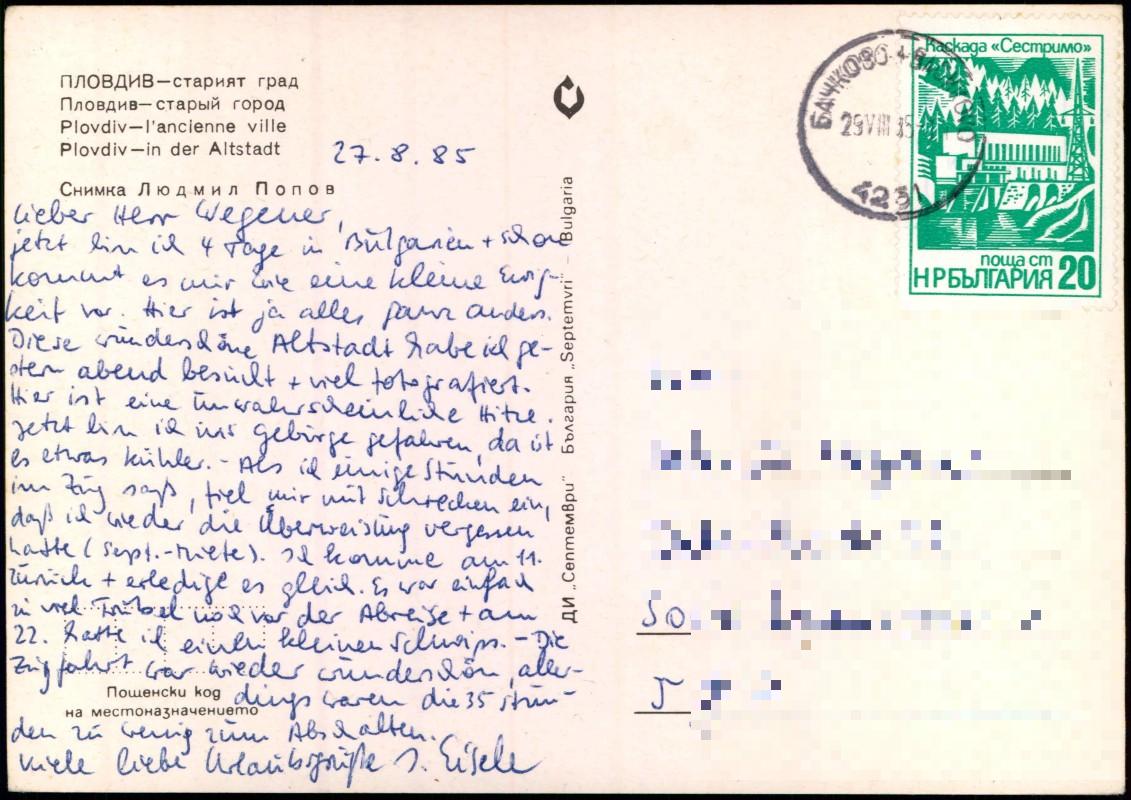 ПЛОВДИВ—старият град
Пловдив—старый город
Plovdiv—l'ancienne ville
Plovdiv—in der Altstadt
27.8.85
Снимка Людмил Попов
Lieber Herr Wegener,
jetzt bin ich 4 Tage in Bulgarien + schon
kommt es mir wie eine kleine Ewig-
keit vor. Hier ist ja alles ganz anders.
Diese wunderschöne Altstadt habe ich ge-
stern abend besucht + viel fotografiert.
Hier ist eine unwahrscheinliche Hitze.
Jetzt bin ich ins Gebirge gefahren, da ist
es etwas kühler. - Als ich einige Stunden
im Zug saß, fiel mir mit Schrecken ein,
daß ich wieder die Überweisung vergessen
hatte (Sept.-Miete). Ich komme am 11.
zurück + erledige es gleich. Es war einfach
zu viel Trubel noch vor der Abreise + am
22. hatte ich einen kleinen Schwips. - Die
Zugfahrt war wieder wunderschön, aller-
dings waren die 35 Stun-
den zu wenig zum Abschalten.
Viele liebe Urlaubsgrüße I. Eisele
Пощенски код
на местоназначението
ДИ „Септември" България „Septemvri" – Bulgaria
БАЧКОВО
29 VIII 85
4251
Каскада «Сестримо»
поща ст
НР БЪЛГАРИЯ 20
50
5